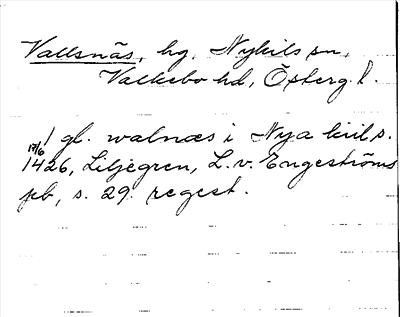 Vallsnäs, hg, Nykils sn,
Valkebo hd, Österg l.
1 gl. walnæs i Nya kirils.
17/6
1426, Liljegren, L. v. Engeströms
pb, s. 29. regest.